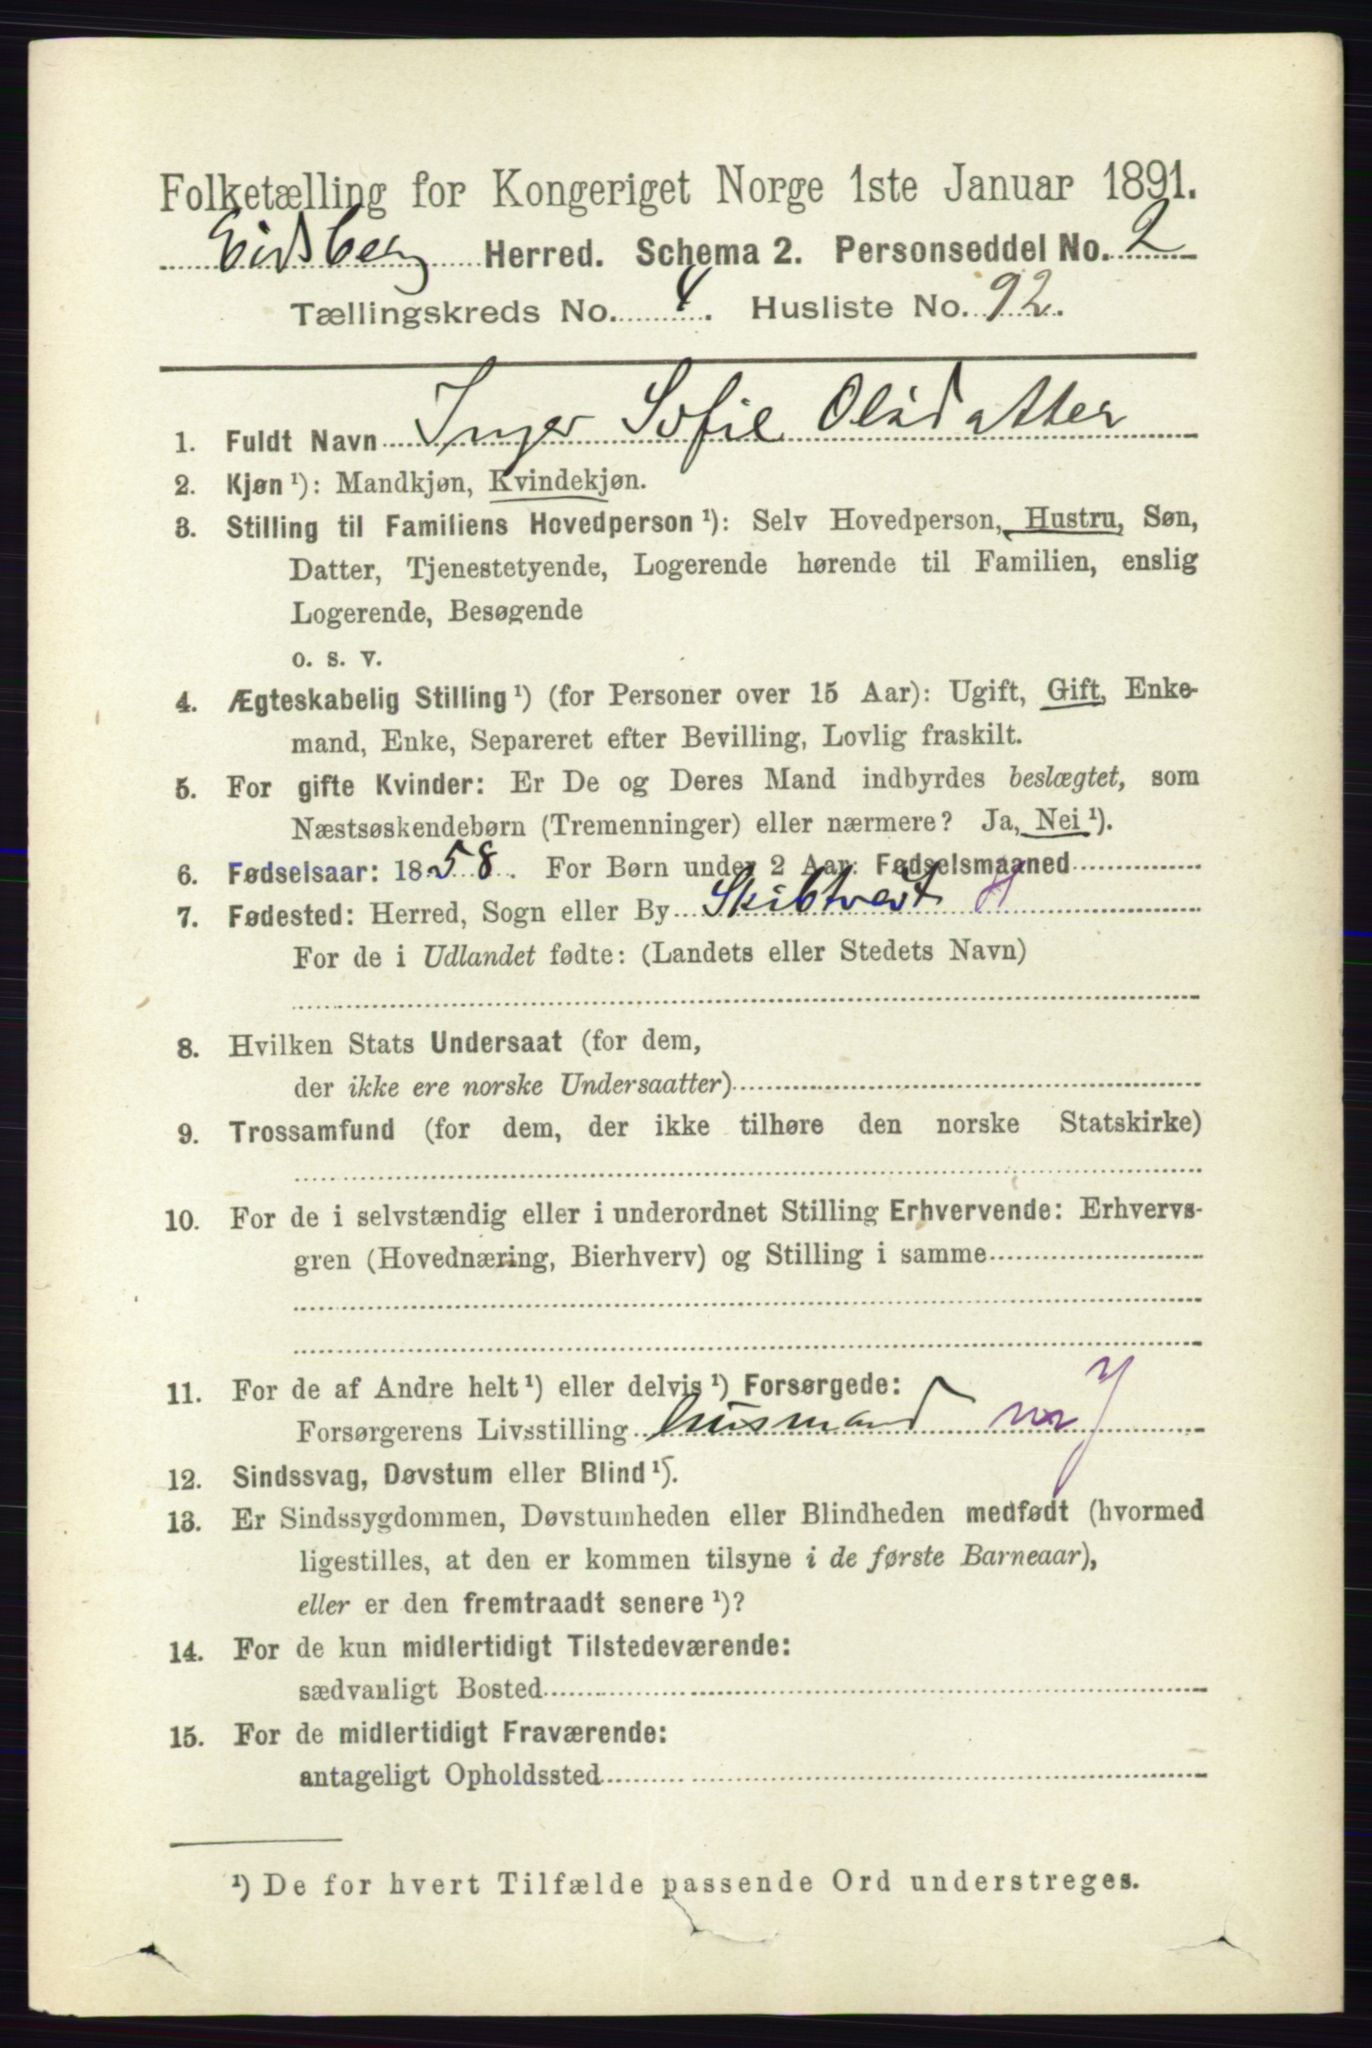 Folketælling for Kongeriget Norge 1ste Januar 1891.
Eidsberg Herred. Schema 2. Personseddel No. 2
Tællingskreds No. 4. Husliste No. 92.
1. Fuldt Navn Inger Sofie Olsdatter
2. Kjøn ¹): Mandkjøn, Kvindekjøn.
3. Stilling til Familiens Hovedperson ¹): Selv Hovedperson, Hustru, Søn,
Datter, Tjenestetyende, Logerende hørende til Familien, enslig
Logerende, Besøgende
o. s. v.
4. Ægteskabelig Stilling ¹) (for Personer over 15 Aar): Ugift, Gift, Enke-
mand, Enke, Separeret efter Bevilling, Lovlig fraskilt.
5. For gifte Kvinder: Er De og Deres Mand indbyrdes beslægtet, som
Næstsøskendebørn (Tremenninger) eller nærmere? Ja, Nei ¹).
6. Fødselsaar: 1858. For Børn under 2 Aar: Fødselsmaaned
7. Fødested: Herred, Sogn eller By Skibtvedt H
For de i Udlandet fødte: (Landets eller Stedets Navn)
8. Hvilken Stats Undersaat (for dem,
der ikke ere norske Undersaatter)
9. Trossamfund (for dem, der ikke tilhøre den norske Statskirke)
10. For de i selvstændig eller i underordnet Stilling Erhvervende: Erhvervs-
gren (Hovednæring, Bierhverv) og Stilling i samme
11. For de af Andre helt ¹) eller delvis ¹) Forsørgede:
Forsørgerens Livsstilling husmand
12. Sindssvag, Døvstum eller Blind ¹).
13. Er Sindssygdommen, Døvstumheden eller Blindheden medfødt (hvormed
ligestilles, at den er kommen tilsyne i de første Barneaar),
eller er den fremtraadt senere ¹)?
14. For de kun midlertidigt Tilstedeværende:
sædvanligt Bosted
15. For de midlertidigt Fraværende:
antageligt Opholdssted
¹) De for hvert Tilfælde passende Ord understreges.